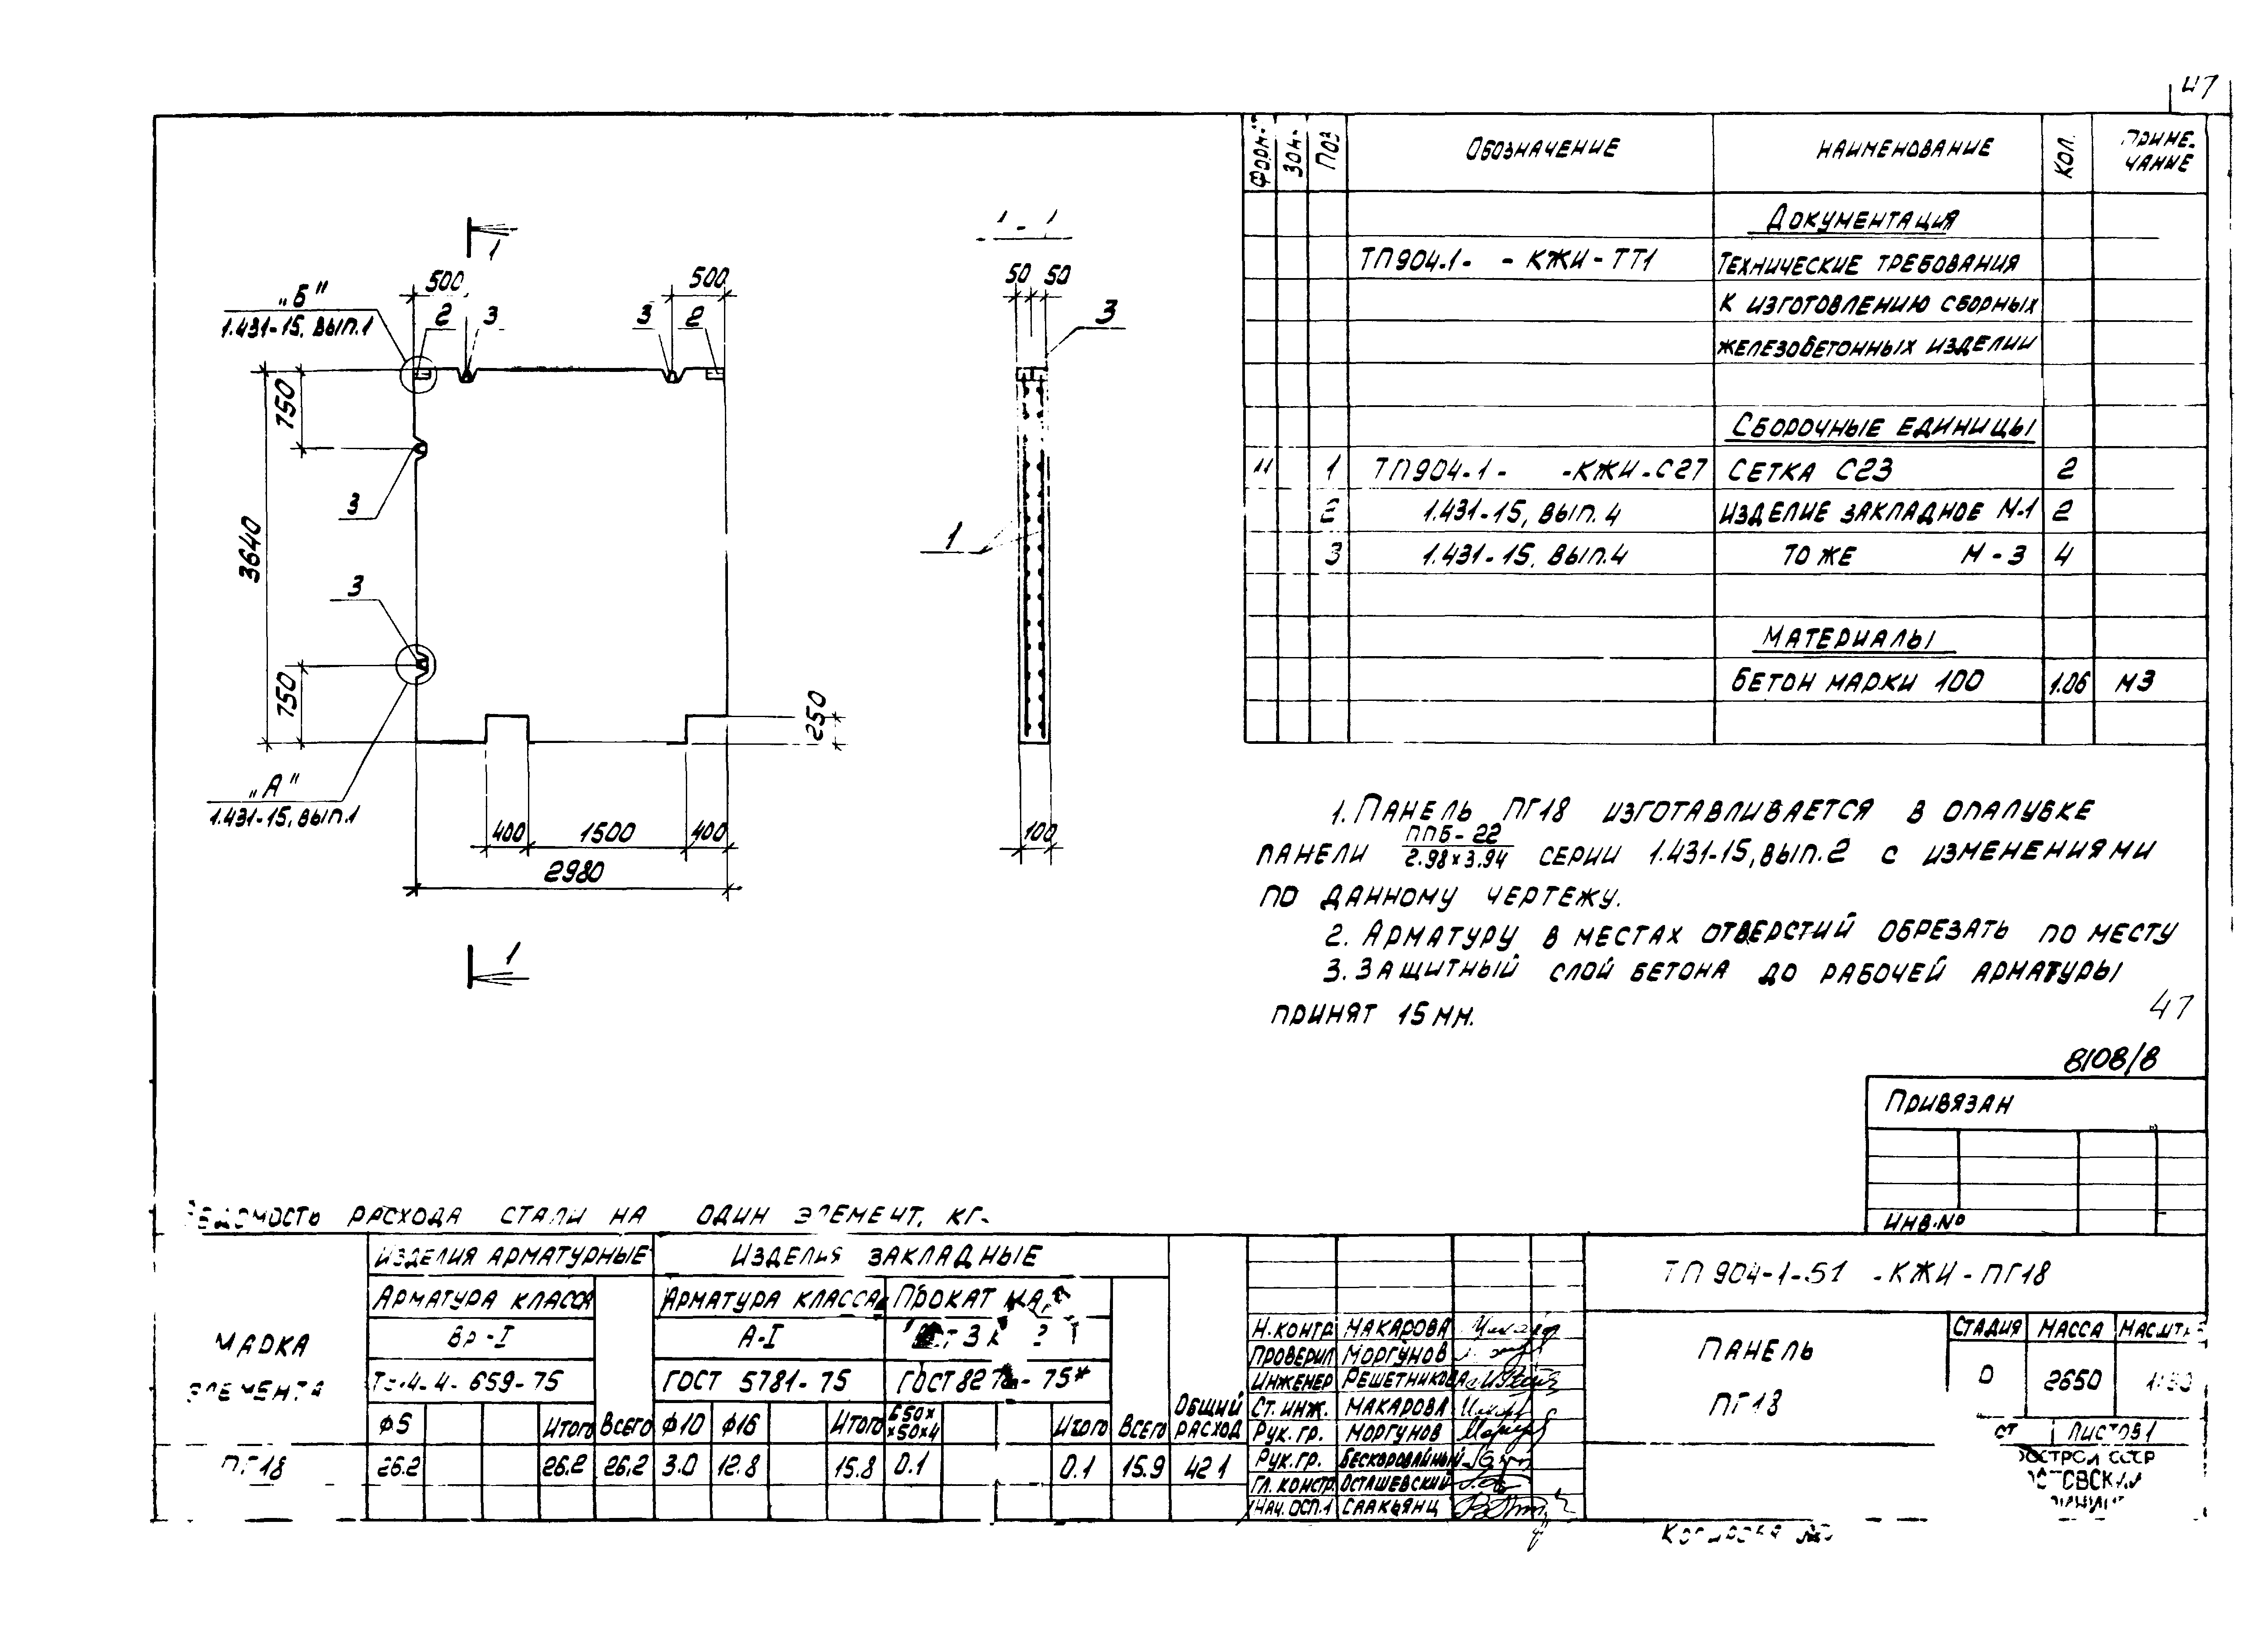 47
Форм. Зон. Поз Обозначение Наименование Кол. Приме-
чание
Документация
ТП904-1- -КЖИ-ТТ1 Технические требования
к изготовлению сборных
железобетонных изделии
Сборочные единицы
11 1 ТП904-1- -КЖИ-С27 Сетка С23 2
2 1.431-15, вып. 4 Изделие закладное М-1 2
3 1.431-15, вып.4 То же М-3 4
Материалы
Бетон марки 100 1.06 м3
1
500 500
„Б"
1.431-15, вып.1
2 3 3 2
750
3
3640
3
750
250
„А"
1.431-15, вып.1
400 1500 400
2980
1
1-1
50 50
3
1
100
1. Панель ПГ18 изготавливается в опалубке
панели ППБ-22 / 2.98×3.94 серии 1.431-15, вып.2 с изменениями
по данному чертежу.
2. Арматуру в местах отверстий обрезать по месту
3. Защитный слой бетона до рабочей арматуры
принят 15 мм.
47
8108/8
Привязан
Инв.№
Ведомость расхода стали на один элемент, кг.
Марка элемента
Изделия арматурные Изделия закладные
Арматура класса Арматура класса Прокат
Вр-I А-I
659-75 ГОСТ 5781-75 ГОСТ 75*
Ф5 Итого Всего Ф10 Ф16 Итого Б50× ×50×4 Итого Всего Общий расход
ПГ18 26.2 26.2 26.2 3.0 12.8 15.8 0.1 0.1 15.9 42.1
Н.контр. Макарова
Проверил Моргунов
Инженер Решетникова
Ст. инж. Макарова
Рук. гр. Моргунов
Рук. гр. Бескоровайный
Гл. констр. Осташевский
Нач. ОСП.1 Саакьянц
ТП 904-1-51 -КЖИ-ПГ18
Панель
ПГ18
Стадия Масса Масшт.
2650
Листов 1
СССР